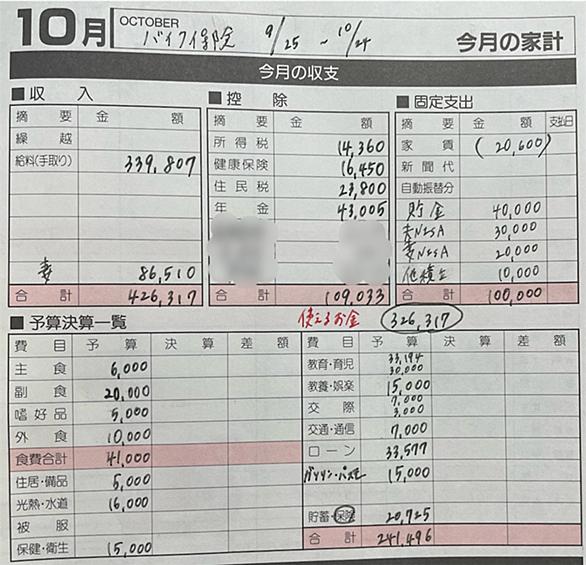 10月 OCTOBER バイク保険 9/25 ~ 10/24 今月の家計
今月の収支
■収入
摘要 金額
繰越
給料(手取り) 339,807
妻 86,510
合計 426,317
■控除
摘要 金額
所得税 14,360
健康保険 16,450
住民税 23,800
年金 43,005
合計 109,033
■固定支出
摘要 金額 支払日
家賃 (20,600)
新聞代
自動振替分
貯金 40,000
夫NISA 30,000
妻NISA 20,000
他積立 10,000
合計 100,000
使えるお金 326,317
■予算決算一覧
費目 予算 決算 差額
主食 6,000
副食 20,000
嗜好品 5,000
外食 10,000
食費合計 41,000
住居・備品 5,000
光熱・水道 16,000
被服
保健・衛生 15,000
費目 予算 決算 差額
教育・育児 33,194
30,000
教養・娯楽 15,000
交際 7,000
3,000
交通・通信 7,000
ローン 33,577
ガソリン・パスモ 15,000
貯蓄・保険 20,725
合計 241,496